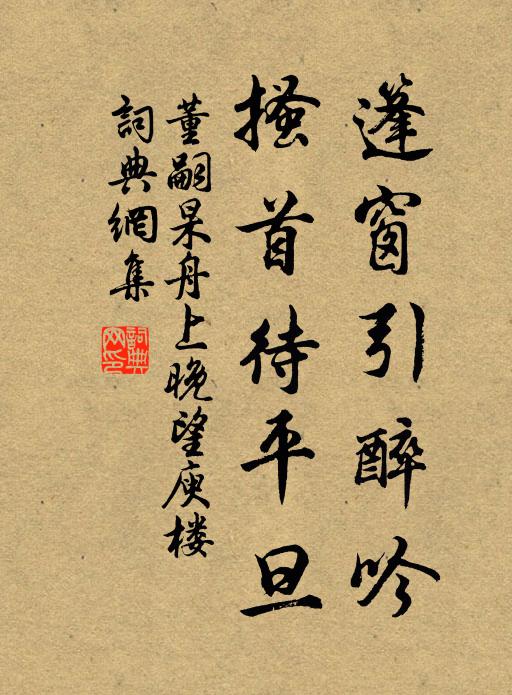 篷窗引醉吟
搔首待平旦
董嗣杲舟上晚望庾楼
詞典網集
詞典网印